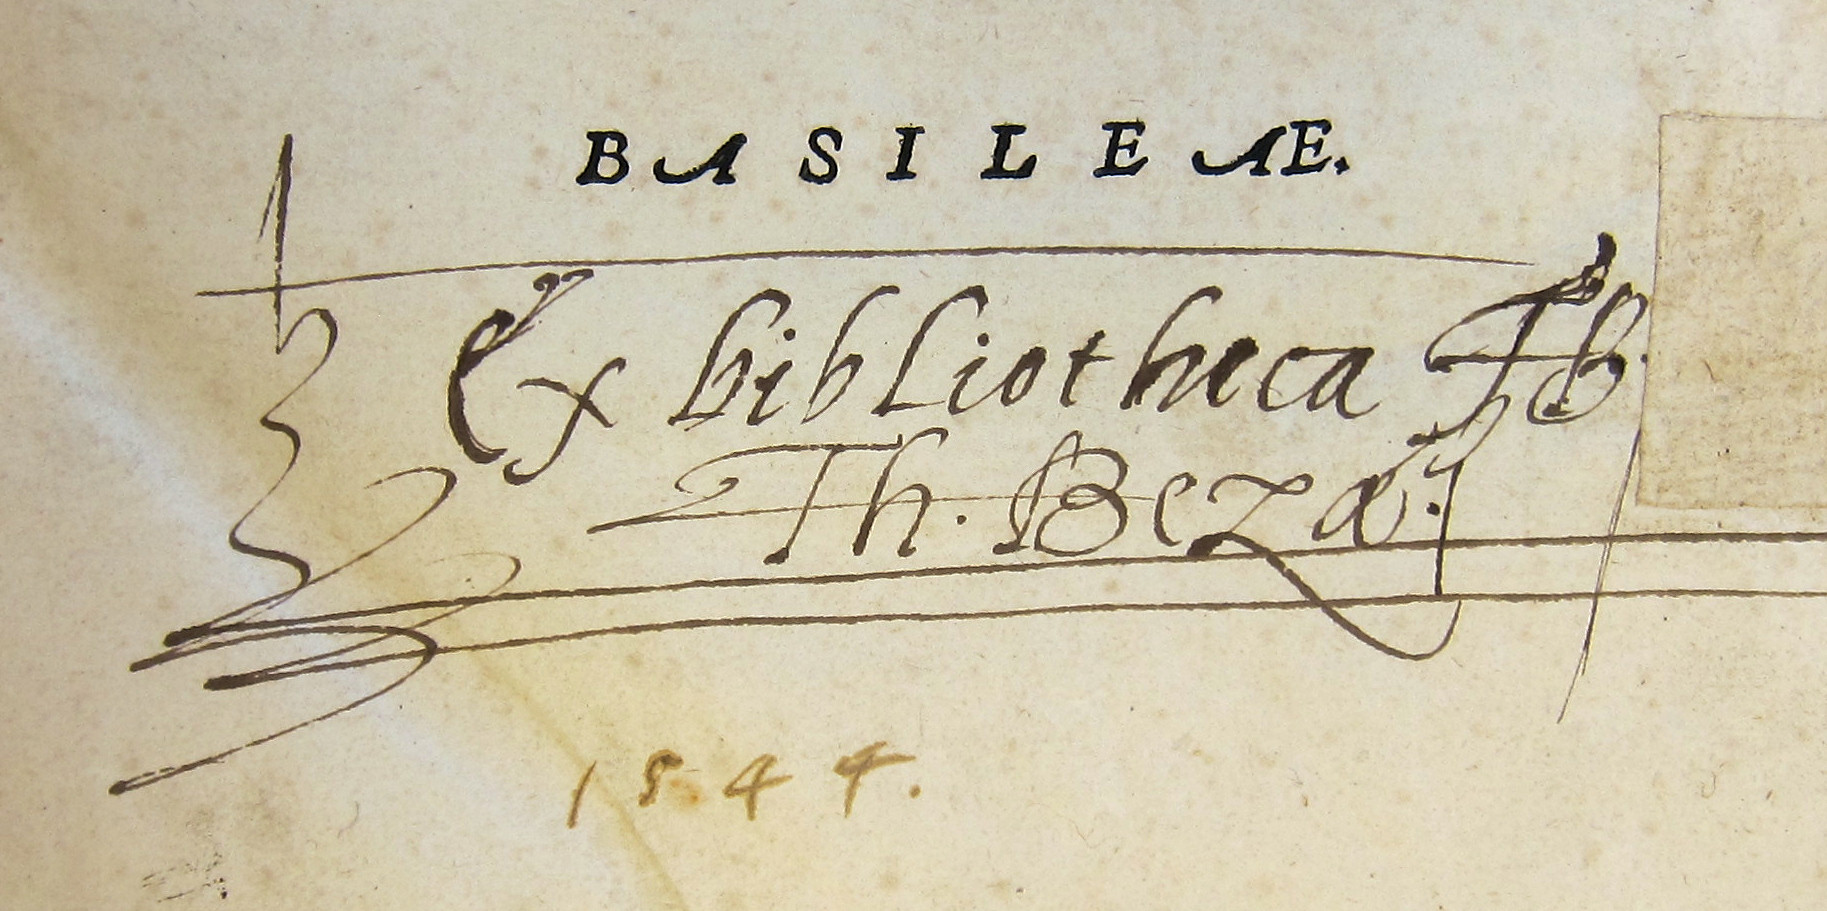 BASILEAE.
Ex bibliotheca
Th. Bezæ.
1544.